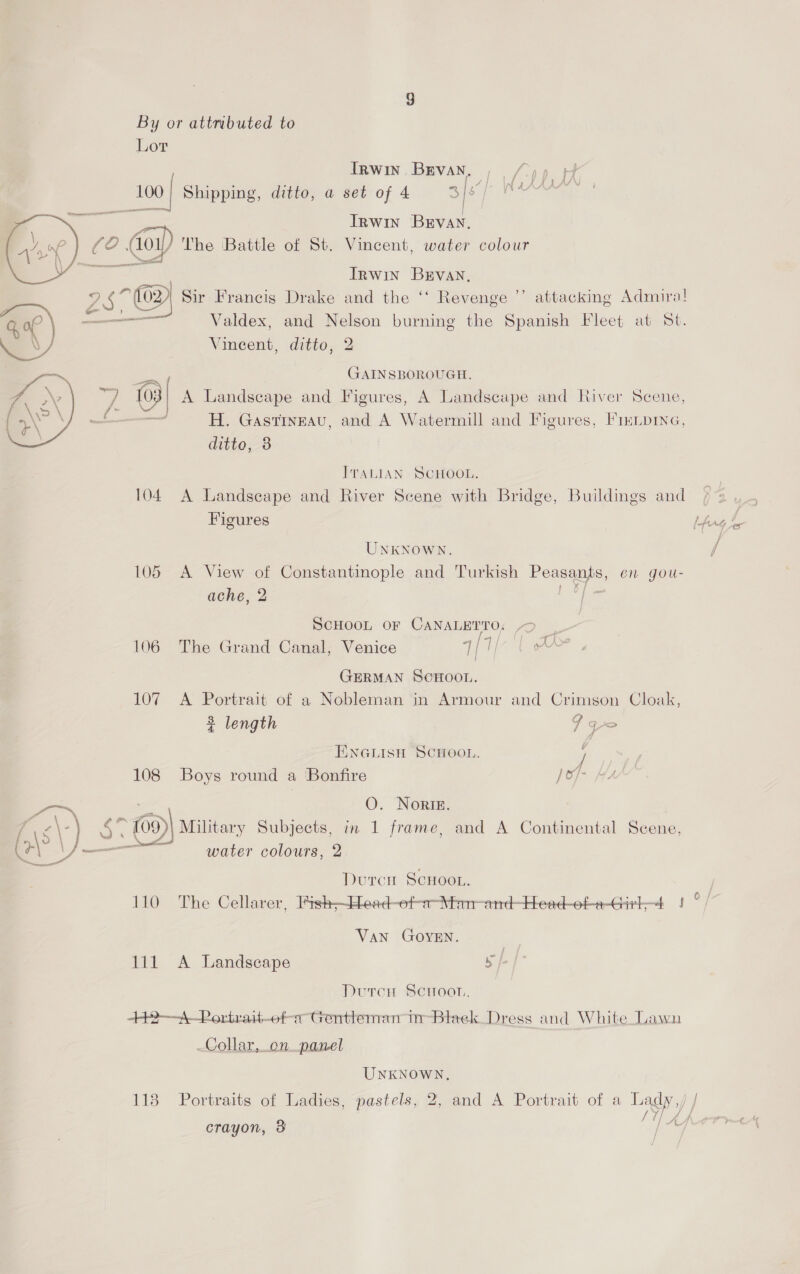 9
By or attributed to
Lot
Irwin Bevan.
100 Shipping, ditto, a set of 4 3/5/-
Irwin Bevan.
101 The Battle of St. Vincent, water colour
Irwin Bevan.
102 Sir Francis Drake and the “ Revenge ” attacking Admiral
Valdex, and Nelson burning the Spanish Fleet at St.
Vincent, ditto, 2
Gainsborough.
7 103 A Landscape and Figures, A Landscape and River Scene,
H. Gastineau, and A Watermill and Figures, Fielding,
ditto, 3
Italian School.
104 A Landscape and River Scene with Bridge, Buildings and
Figures
Unknown.
105 A View of Constantinople and Turkish Peasants, en gou-
ache, 2
School of Canaletto.
106 The Grand Canal, Venice 7/7/-
German School.
107 A Portrait of a Nobleman in Armour and Crimson Cloak,
¾ length
English School.
108 Boys round a Bonfire
O. Norie.
109 Military Subjects, in 1 frame, and A Continental Scene,
water colours, 2
Dutch School.
110 The Cellarer, Fish, Head of a Man and Head of a Girl, 4
Van Goyen.
111 A Landscape
Dutch School.
112 A Portrait of a Gentleman in Black Dress and White Lawn
Collar, on panel
Unknown.
113 Portraits of Ladies, pastels, 2, and A Portrait of a Lady,
crayon, 3